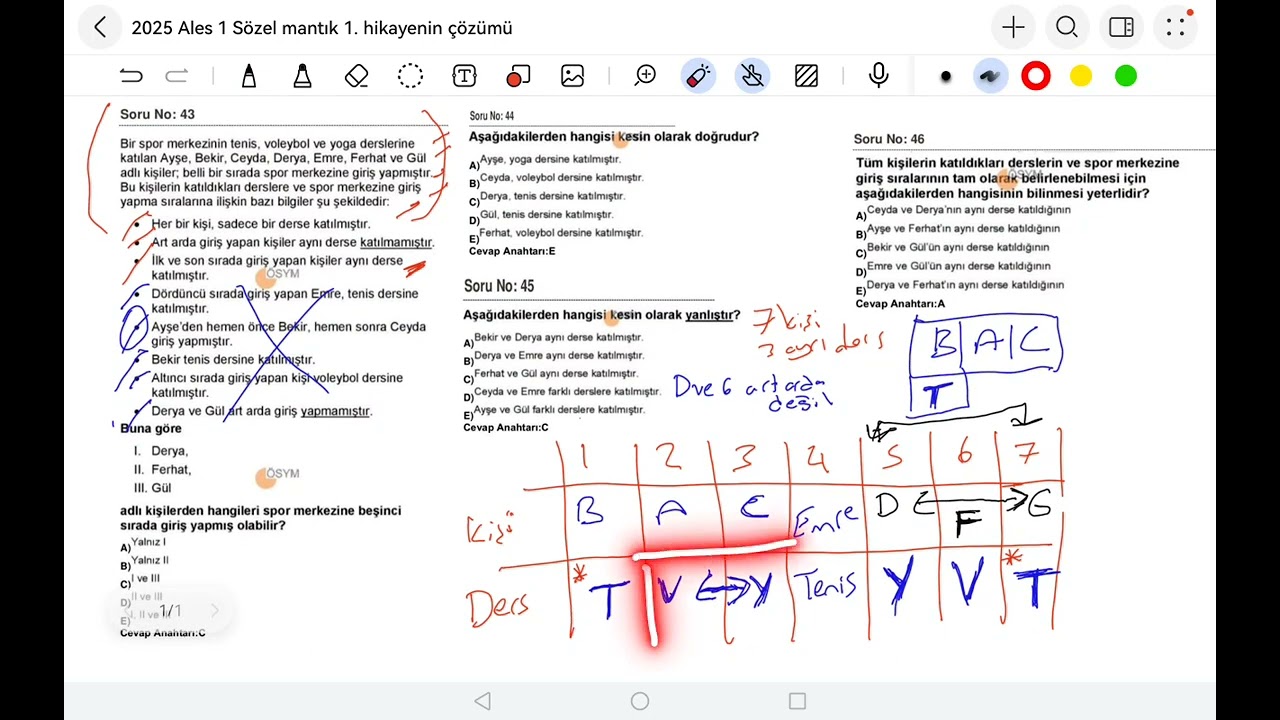 2025 Ales 1 Sözel mantık 1. hikayenin çözümü
Soru No: 43
Bir spor merkezinin tenis, voleybol ve yoga derslerine
katılan Ayşe, Bekir, Ceyda, Derya, Emre, Ferhat ve Gül
adlı kişiler; belli bir sırada spor merkezine giriş yapmıştır.
Bu kişilerin katıldıkları derslere ve spor merkezine giriş
yapma sıralarına ilişkin bazı bilgiler şu şekildedir:
• Her bir kişi, sadece bir derse katılmıştır.
• Art arda giriş yapan kişiler aynı derse katılmamıştır.
• İlk ve son sırada giriş yapan kişiler aynı derse
katılmıştır.
ÖSYM
• Dördüncü sırada giriş yapan Emre, tenis dersine
katılmıştır.
• Ayşe'den hemen önce Bekir, hemen sonra Ceyda
giriş yapmıştır.
• Bekir tenis dersine katılmıştır.
• Altıncı sırada giriş yapan kişi voleybol dersine
katılmıştır.
• Derya ve Gül art arda giriş yapmamıştır.
Buna göre
I. Derya,
II. Ferhat,
III. Gül
ÖSYM
adlı kişilerden hangileri spor merkezine beşinci
sırada giriş yapmış olabilir?
A) Yalnız I
B) Yalnız II
C) I ve III
D) II ve III
E) I, II ve III
1/1
Cevap Anahtarı:C
Soru No: 44
Aşağıdakilerden hangisi kesin olarak doğrudur?
A) Ayşe, yoga dersine katılmıştır.
B) Ceyda, voleybol dersine katılmıştır.
C) Derya, tenis dersine katılmıştır.
D) Gül, tenis dersine katılmıştır.
E) Ferhat, voleybol dersine katılmıştır.
Cevap Anahtarı:E
Soru No: 45
Aşağıdakilerden hangisi kesin olarak yanlıştır?
A) Bekir ve Derya aynı derse katılmıştır.
B) Derya ve Emre aynı derse katılmıştır.
C) Ferhat ve Gül aynı derse katılmıştır.
D) Ceyda ve Emre farklı derslere katılmıştır.
E) Ayşe ve Gül farklı derslere katılmıştır.
Cevap Anahtarı:C
Soru No: 46
Tüm kişilerin katıldıkları derslerin ve spor merkezine
giriş sıralarının tam olarak belirlenebilmesi için
ÖSYM
aşağıdakilerden hangisinin bilinmesi yeterlidir?
A) Ceyda ve Derya'nın aynı derse katıldığının
B) Ayşe ve Ferhat'ın aynı derse katıldığının
C) Bekir ve Gül'ün aynı derse katıldığının
D) Emre ve Gül'ün aynı derse katıldığının
E) Derya ve Ferhat'ın aynı derse katıldığının
Cevap Anahtarı:A
7 kişi
3 ayrı ders
D ve G art arda
değil
B A C
T
1 2 3 4 5 6 7
Kişi B A C Emre D F G
Ders * T V Y Tenis Y V * T